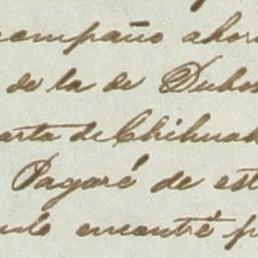 compaño ahor
de la de Dube
arta de Chihuah
Pagaré de est
encontré p